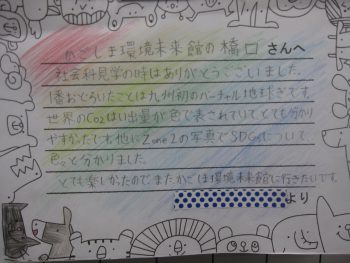 かごしま環境未来館の橋口さんへ
社会科見学の時はありがとうございました。
1番おどろいたことは九州初のバーチャル地球ぎです。
世界のCo2はい出量が色で表されていてとても分かり
やすかったです。他にZone2の写真でSDGsについて、
色々と分かりました。
とても楽しかったので、またかごしま環境未来館に行きたいです。
より